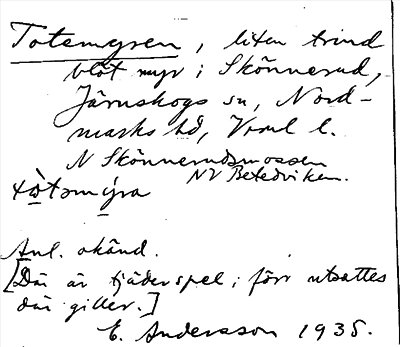 Totemyren, liten trind
blöt myr i Skönnerud,
Järnskogs sn, Nord-
marks hd, Vrml l.
N Skönnerudsmossen
NV Betedviken.
tòtəmýra
Anl. okänd.
[Där är tjäderspel; förr utsattes
där giller.]
E. Andersson 1935.